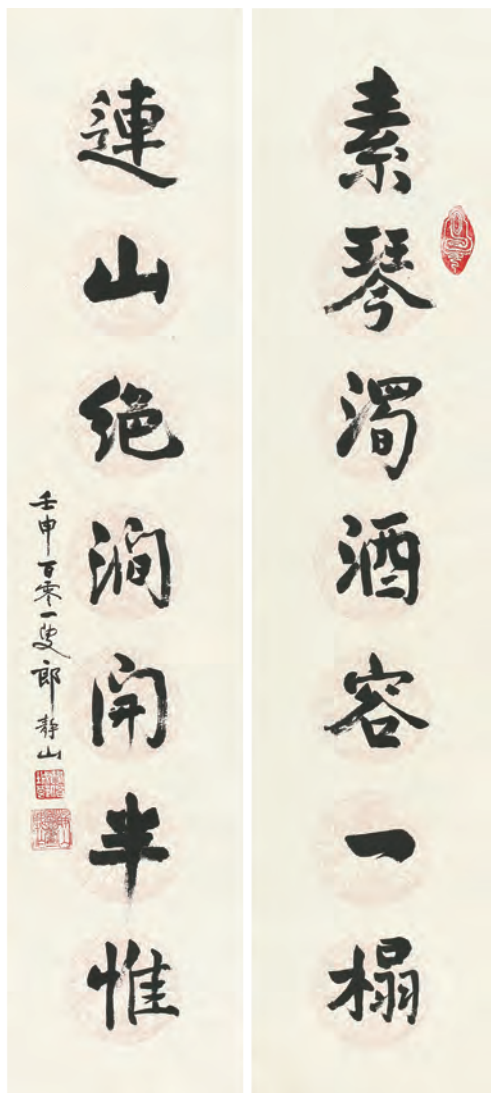 素琴濁酒容一榻
連山絕澗開半惟
壬申百零一叟郎靜山